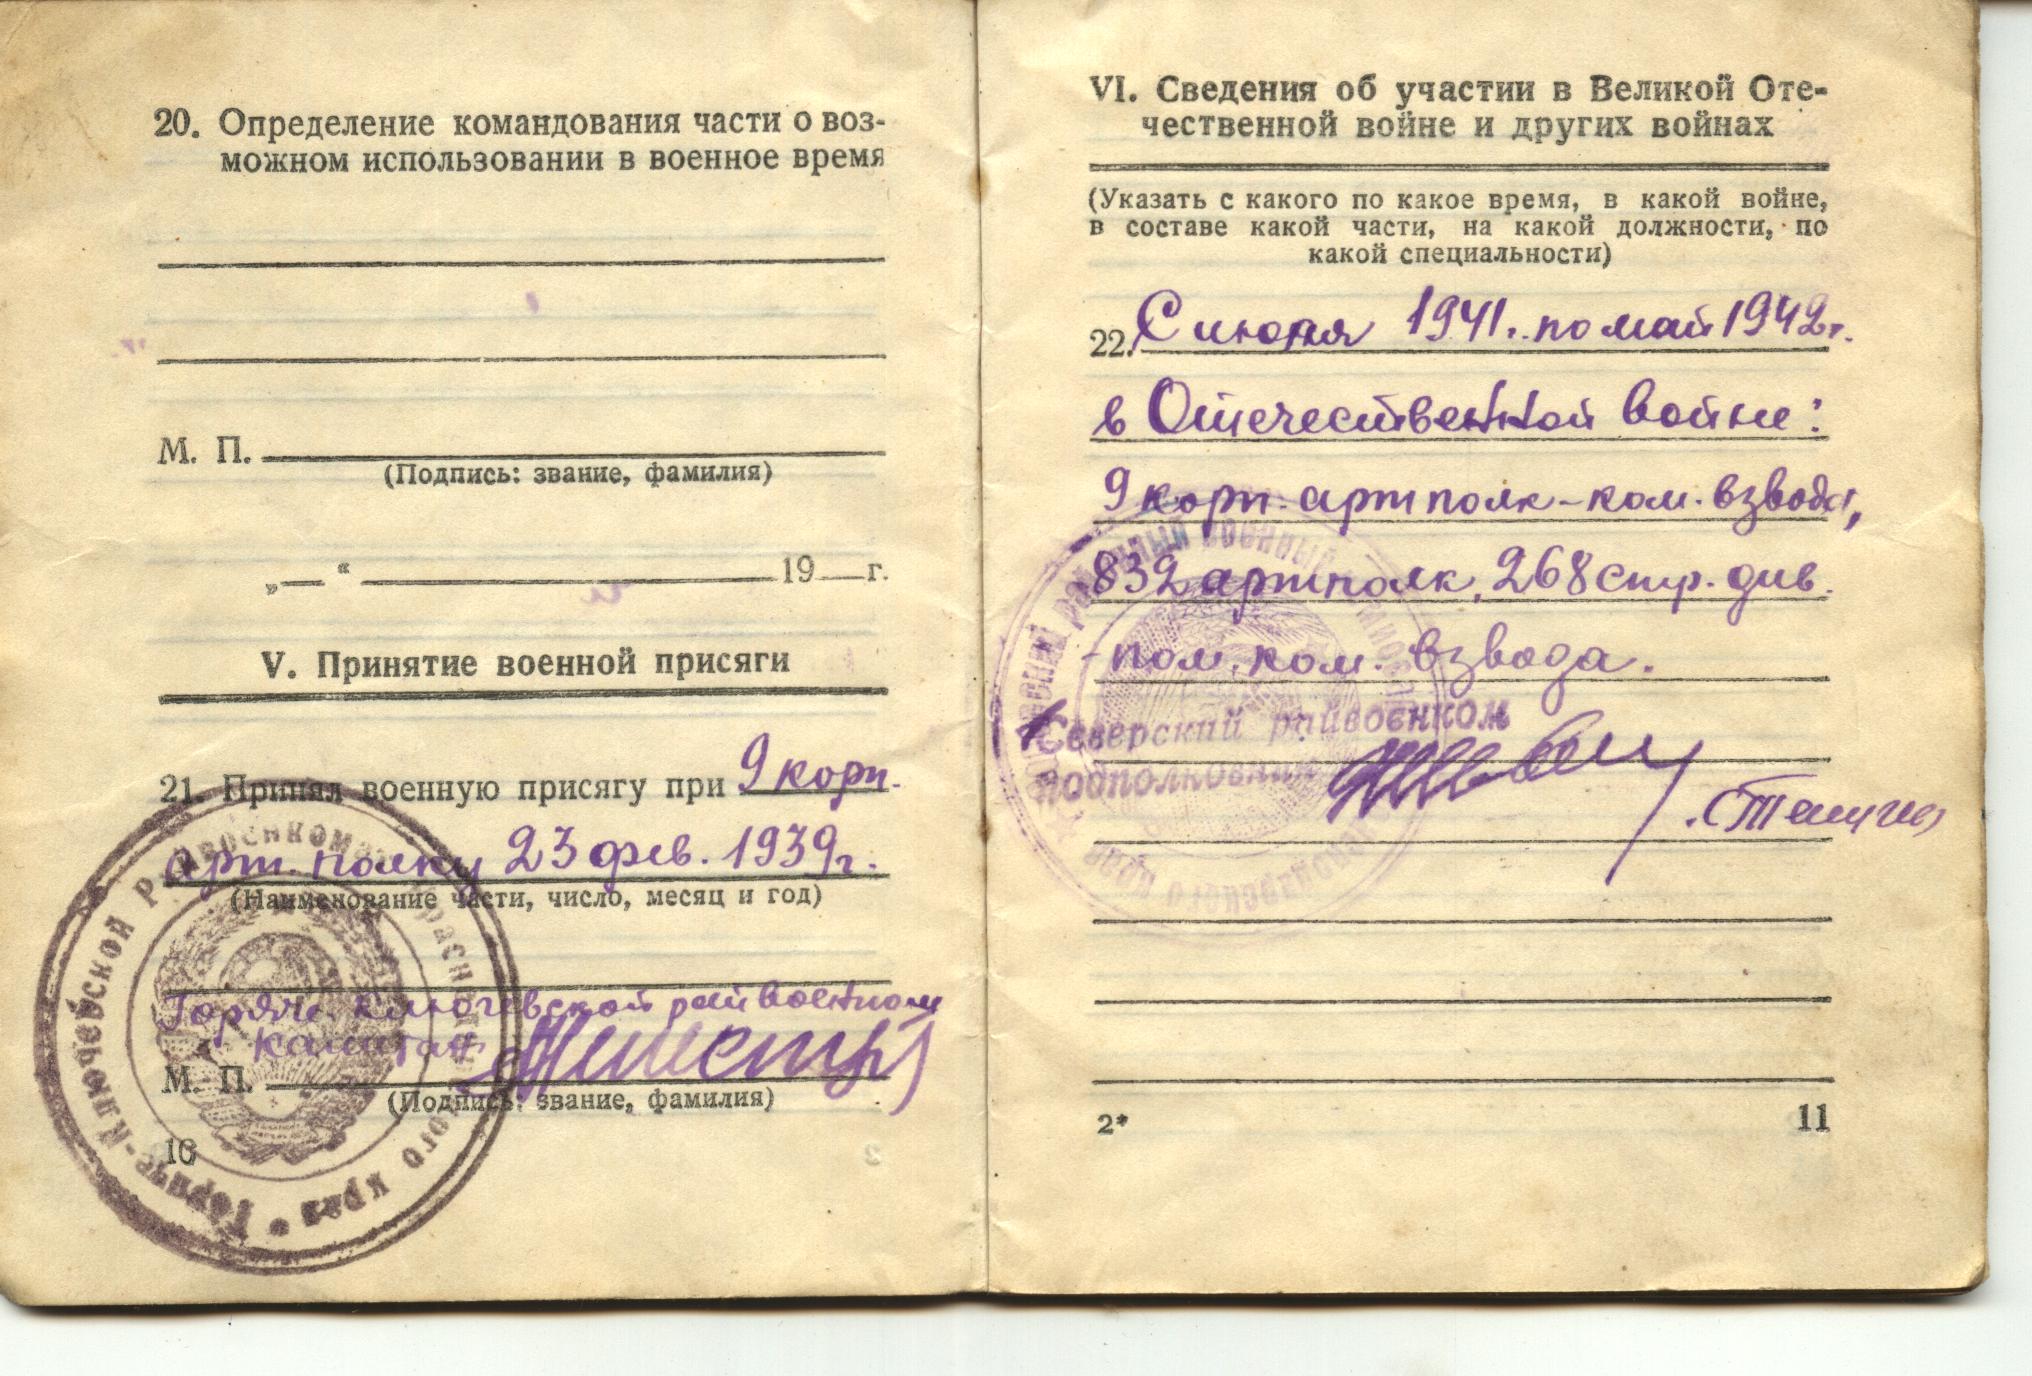 20. Определение командования части о воз-
можном использовании в военное время
М. П.
(Подпись: звание, фамилия)
„ “ 19 г.
V. Принятие военной присяги
21. Принял военную присягу при 9 корп.
арт. полку 23 фев. 1939 г.
(Наименование части, число, месяц и год)
Горяче-Ключевской райвоенком
капитан
М. П.
(Подпись: звание, фамилия)
10
Горяче-Ключевской Райвоенкомат Краснодарского края
VI. Сведения об участии в Великой Оте-
чественной войне и других войнах
(Указать с какого по какое время, в какой войне,
в составе какой части, на какой должности, по
какой специальности)
22. С июня 1941. по май 1942 г.
в Отечественной войне:
9 корп. артполк - ком. взвода,
832 артполк, 268 стр. див.
- пом. ком. взвода.
Северский райвоенком
подполковник
2*
11